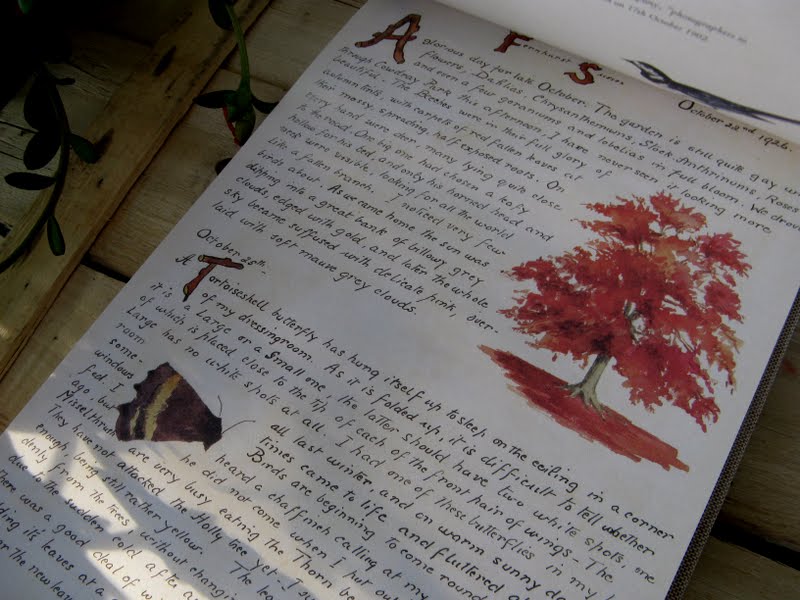 "photographers in
on 17th October 1902.
Fernhurst
October 22nd 1926.
A glorious day for late October. The garden is still quite gay
flowers, Dahlias, Chrysanthemums, Stock, Anthrinums, Roses
and even a few geraniums and lobelias in full bloom. We drove
through Cowdray Park this afternoon, I have never seen it looking more
beautiful. The Beeches were in their full glory of
autumn tints, with carpets of red fallen leaves at
their mossy, spreading, half exposed roots. On
every hand were deer, many lying quite close
to the road. One big one had chosen a leafy
hollow for his bed, and only his horned head and
were visible, looking for all the world
like a fallen branch. I noticed very few
birds about. As we came home the sun was
dipping into a great bank of billowy grey
clouds edged with gold, and later the whole
sky became suffused with delicate pink, over-
laid with soft mauve grey clouds.
October
A Tortoiseshell butterfly has hung itself up to sleep on the ceiling in a corner
of my dressingroom. As it is folded up, it is difficult to tell whether
it is a Large or a Small one, the latter should have two white spots, one
of which is placed close to the tip of each of the front pair of wings - The
Large has no white spots at all. I had one of these butterflies in my
room all last winter, and on warm sunny
some- times came to life and fluttered
windows Birds are beginning to come round
fed. I heard a chaffinch calling at my
ago, but he did not come when I put out
are very busy eating the Thorn
They have not attacked the Holly tree yet -
enough, being still rather yellow. The
denly from the trees, without
due to the sudden cold after
There was a good deal of
its leaves at a
the new